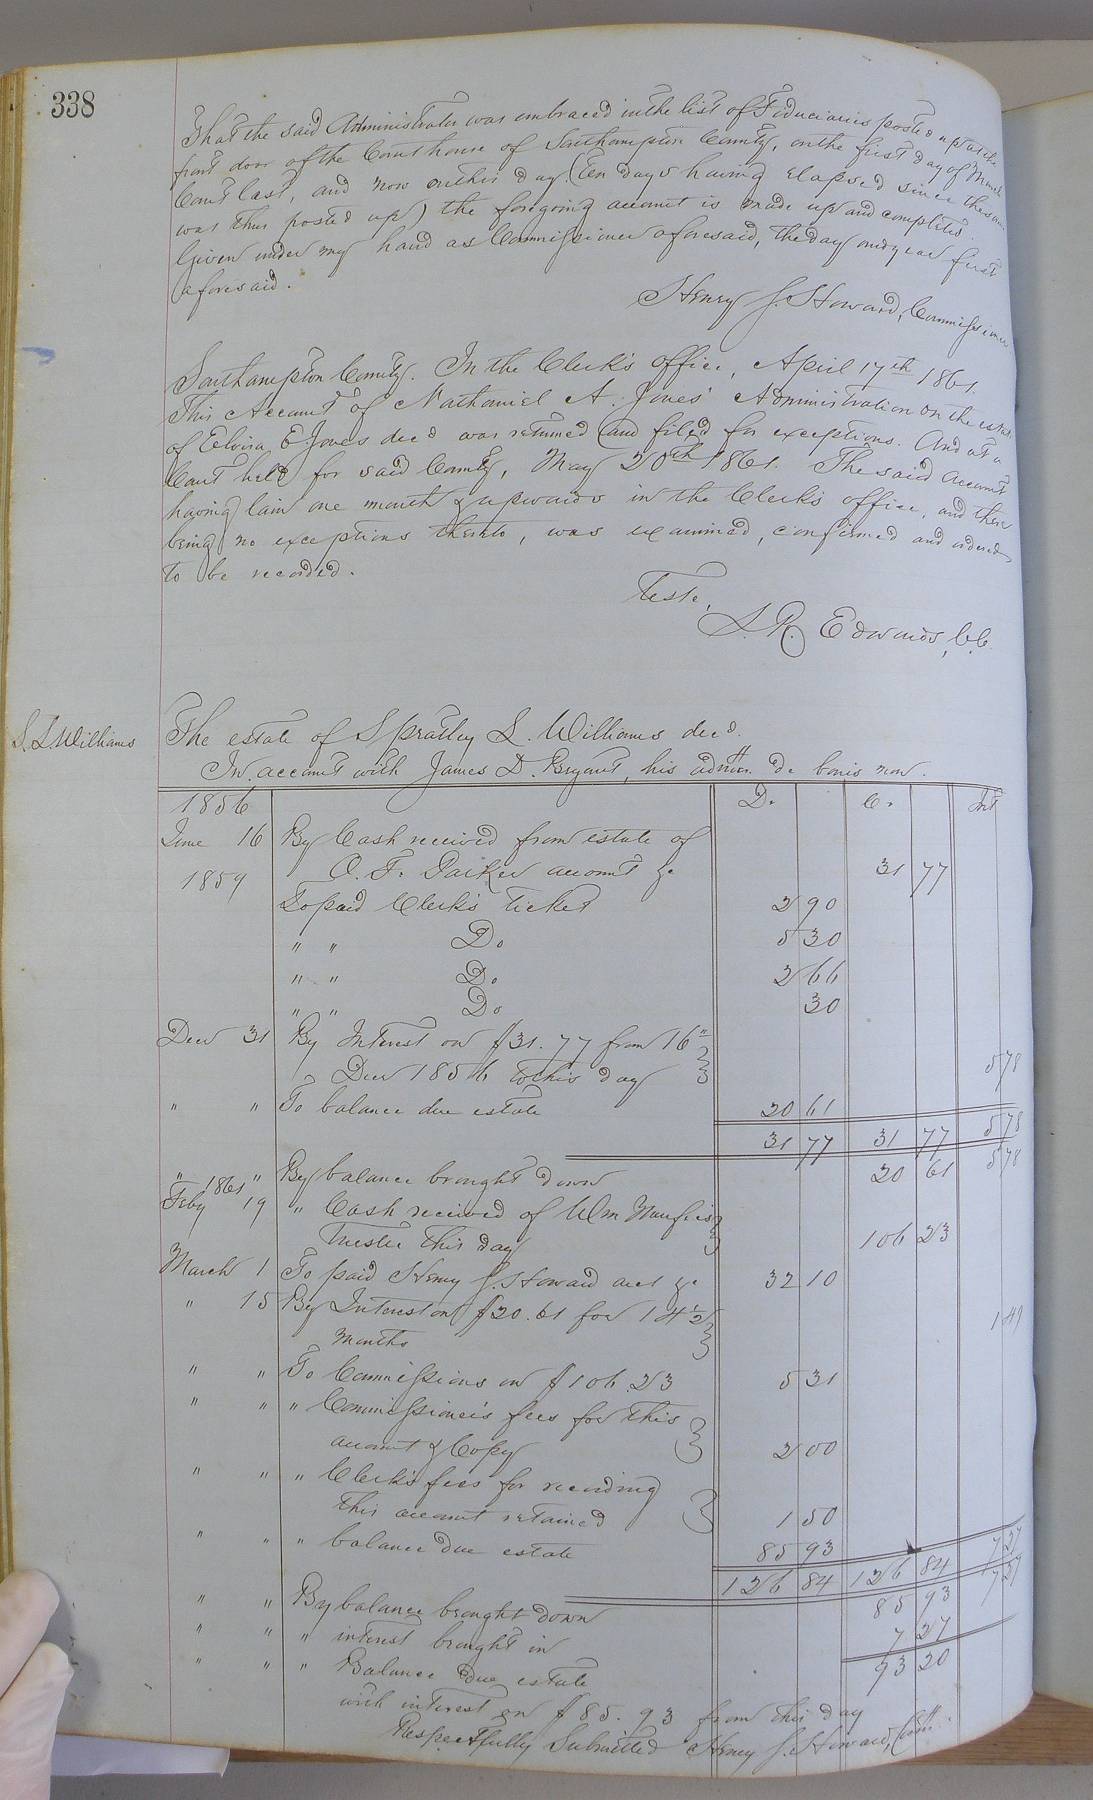 338
That the said Administrator was embraced in the list of Fiduciaries posted up at the
front door of the Courthouse of Southampton County, on the first day of March
Court last, and now on this day (Ten days having elapsed since the same
was thus posted up) the foregoing account is made up and completed.
Given under my hand as Commissioner aforesaid, the day and year first
aforesaid.
Henry J. Howard, Commissioner
Southampton County. In the Clerk's office, April 17th 1861.
This Account of Nathaniel A. Jones' Administration on the estate
of Elvira E Jones decd was returned and filed for exceptions. And at a
Court held for said County, May 20th 1861. The said Account
having lain one month & upwards in the Clerk's office, and there
being no exceptions thereto, was examined, confirmed and ordered
to be recorded.
Teste,
L. R. Edwards, C.C.
S. L Williams
The estate of Spratley L. Williams decd.
In account with James D. Bryant, his admr. de bonis non.
1856 Dr Cr. Int
June 16 By Cash received from estate of
O. F. Parker account &c 31 77
1859
To paid Clerk's Ticket 2 90
" " Do 5 30
" " Do 2 66
" " Do 30
Decr 31 By Interest on $31.77 from 16th
" Decr 1856 to this day 5 78
" " To balance due estate 20 61
31 77 31 77 5 78
" " By balance brought down 20 61 5 78
1861
Feby 19 " Cash received of Wm
Trustee this day 106 23
March 1 To paid Henry J. Howard acct &c 32 10
" 15 By Interest on $20.61 for 14 1/2
Months 1 49
" " To Commissions on $106.23 5 31
" " " Commissioner's fees for this
account & Copy 2 00
" " " Clerk's fees for recording
this account retained 1 50
" " " balance due estate 85 93 7 27
126 84 126 84 7 27
" " By balance brought down 85 93
" " " interest brought in 7 27
" " " Balance due estate 93 20
with interest on $85.93 from this day
Respectfully Submitted Henry J. Howard, Comr.